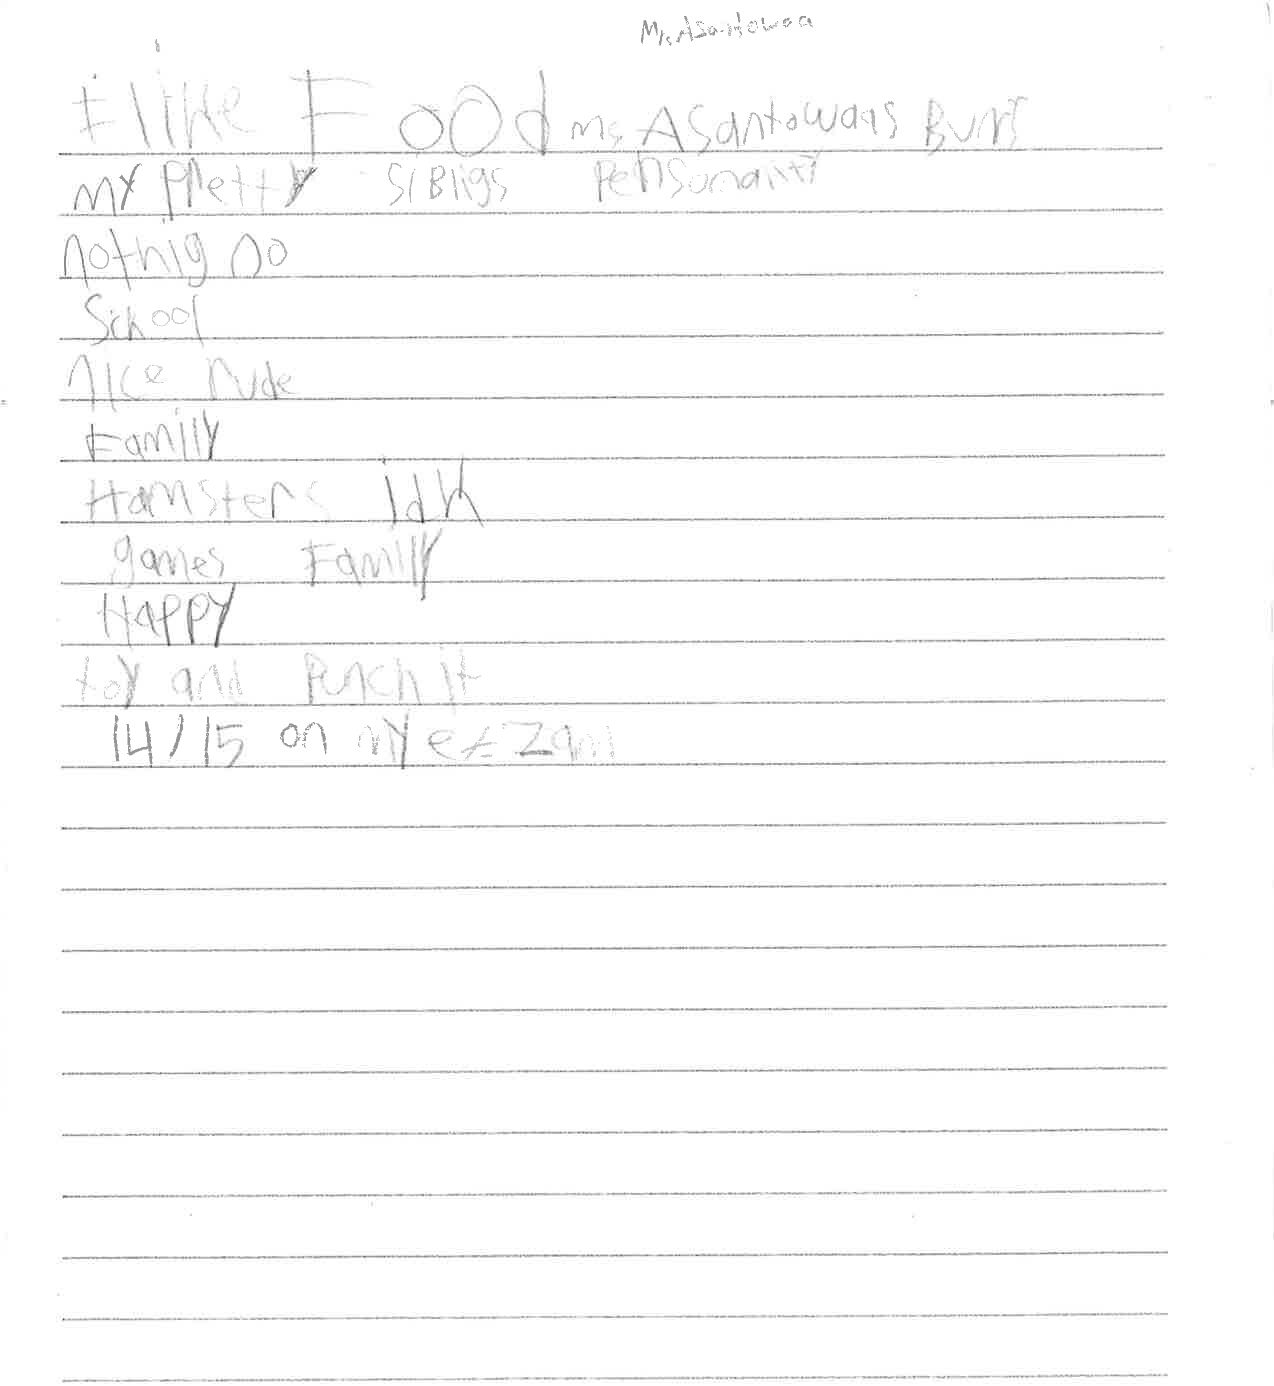 Ms Asantowaa
I like Food ms Asantowaas Buns
my pretty siBligs Personality
nothig no
School
nice rude
Familly
Hamsters idk
games Familly
Happy
toy and Punch it
14/15 on my exzam